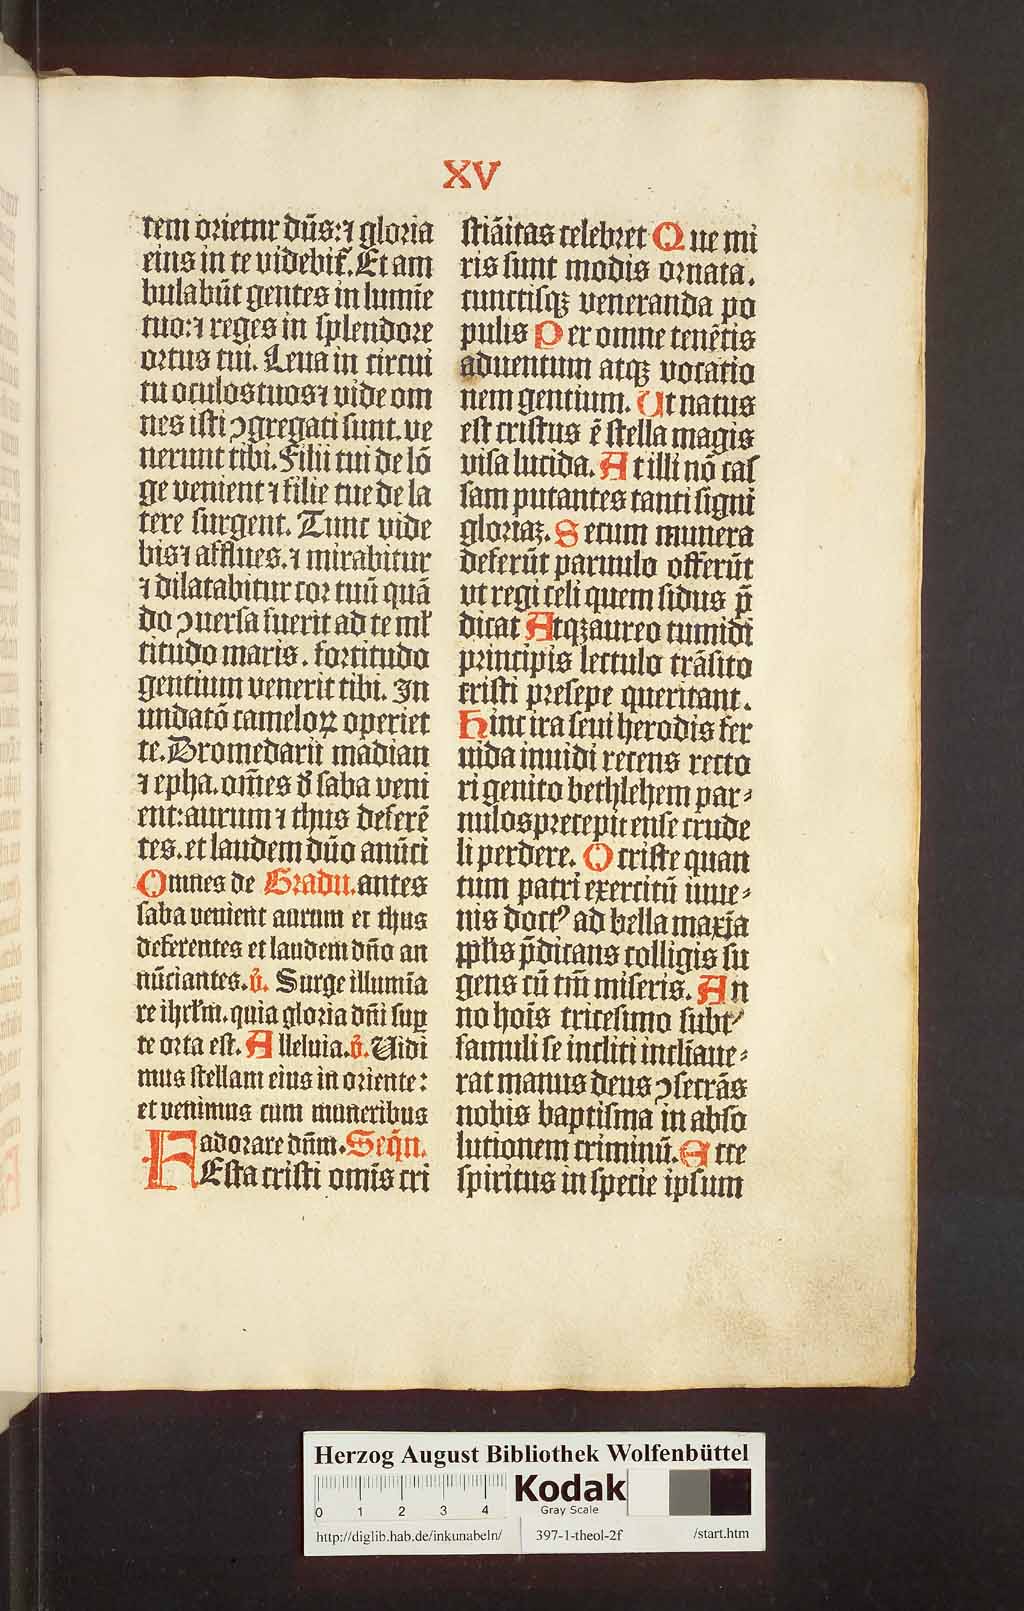 XV
tem orietur dn̄s: ⁊ gloria
eius in te videbit̃. Et am
bulabūt gentes in lumīe
tuo: ⁊ reges in splendore
ortus tui. Leua in circui
tu oculos tuos ⁊ vide om
nes isti ꝯgregati sunt. ve
nerunt tibi. Filii tui de lō
ge venient ⁊ filie tue de la
tere surgent. Tunc vide
bis ⁊ afflues. ⁊ mirabitur
⁊ dilatabitur cor tuū quā
do ꝯuersa fuerit ad te ml̓
titudo maris. fortitudo
gentium venerit tibi. In
undatō cameloꝝ operiet
te. Dromedarii madian
⁊ epha. om̄es d̓ saba veni
ent: aurum ⁊ thus deferē
tes. et laudem dn̄o anūci
Omnes de Gradu. antes
saba venient aurum et thus
deferentes et laudem dn̄o an
nūciantes. v̓. Surge illumīa
re ihrl̓m. quia gloria dn̄i suꝑ
te orta est. Alleluia. v̓. Vidi
mus stellam eius in oriente:
et venimus cum muneribus
adorare dn̄m. Seqn̄.
FEsta cristi omīs cri
stiāitas celebret Que mi
ris sunt modis ornata.
cunctisqꝫ veneranda po
pulis Per omne tenētis
aduentum atqꝫ vocatio
nem gentium. Ut natus
est cristus ē stella magis
visa lucida. At illi nō cas
sam putantes tanti signi
gloriaꝫ. Secum munera
deferūt paruulo offerūt
ut regi celi quem sidus p̄
dicat Atqꝫ aureo tumidi
principis lectulo trāsito
cristi presepe queritant.
Hinc ira seui herodis fer
uida inuidi recens recto
ri genito bethlehem par⸗
uulos precepit ense crude
li perdere. O criste quan
tum patri exercitū iuue⸗
nis doctꝰ ad bella maxīa
ppl̓is p̄dicans colligis su
gens cū tm̄ miseris. An
no hoīs tricesimo subtꝰ
famuli se incliti inclīaue⸗
rat manus deus ꝯsecrās
nobis baptisma in abso
lutionem criminū. Ecce
spiritus in specie ipsum
Herzog August Bibliothek Wolfenbüttel
Kodak
Gray Scale
0 1 2 3 4
http://diglib.hab.de/inkunabeln/ 397-1-theol-2f /start.htm